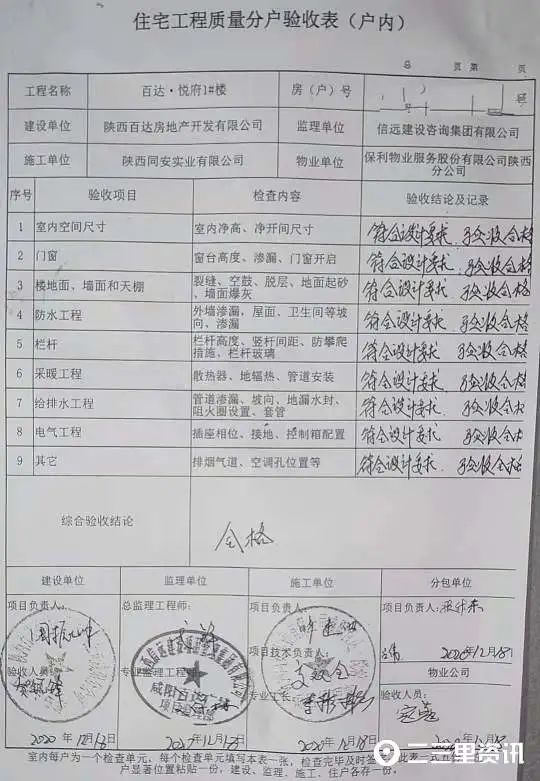 住宅工程质量分户验收表（户内）
页第 页
工程名称 百达·悦府1#楼 房（户）号 号
建设单位 陕西百达房地产开发有限公司 监理单位 信远建设咨询集团有限公司
施工单位 陕西同安实业有限公司 物业单位 保利物业服务股份有限公司陕西
分公司
序号 验收项目 检查内容 验收结论及记录
1 室内空间尺寸 室内净高、净开间尺寸 符合设计要求 验收合格
2 门窗 窗台高度、渗漏、门窗开启 符合设计要求 验收合格
3 楼地面、墙面和天棚 裂缝、空鼓、脱层、地面起砂
、墙面爆灰 符合设计要求 验收合格
4 防水工程 外墙渗漏，屋面、卫生间等坡
向、渗漏 符合设计要求 验收合格
5 栏杆 栏杆高度、竖杆间距、防攀爬
措施、栏杆玻璃 符合设计要求 验收合格
6 采暖工程 散热器、地辐热、管道安装 符合设计要求 验收合格
7 给排水工程 管道渗漏、坡向、地漏水封、
阻火圈设置、套管 符合设计要求 验收合
8 电气工程 插座相位、接地、控制箱配置 符合设计要求 验收合
9 其它 排烟气道、空调孔位置等 符合设计要求 验收合格
综合验收结论 合格
建设单位 监理单位 施工单位 分包单位
项目负责人： 总监理工程师： 项目负责人： 项目负责人：
项目技术负责人： 2020年12月18日
物业公司
验收人员 专业监理工程师 专业工长 验收人员：
2020年12月18日 年12月18日 2020年12月18日 年12月18日
室内每户为一个检查单元，每个检查单元填写本表一张，检查完毕及时签
户显著位置粘贴一份，建设、监理、施工、住户各存一份。
二三里资讯